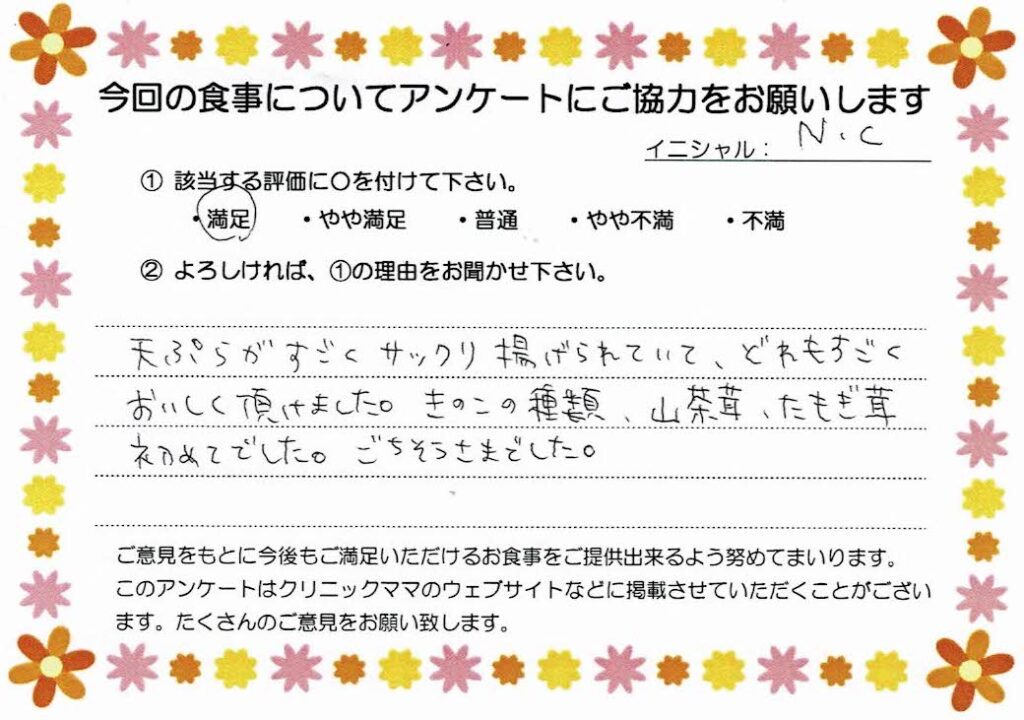 今回の食事についてアンケートにご協力をお願いします
イニシャル： N.C
① 該当する評価に○を付けて下さい。
・満足 ・やや満足 ・普通 ・やや不満 ・不満
② よろしければ、①の理由をお聞かせ下さい。
天ぷらがすごくサックリ揚げられていて、どれもすごく
おいしく頂けました。きのこの種類、山茶茸、たもぎ茸
初めてでした。ごちそうさまでした。
ご意見をもとに今後もご満足いただけるお食事をご提供出来るよう努めてまいります。
このアンケートはクリニックママのウェブサイトなどに掲載させていただくことがござい
ます。たくさんのご意見をお願い致します。